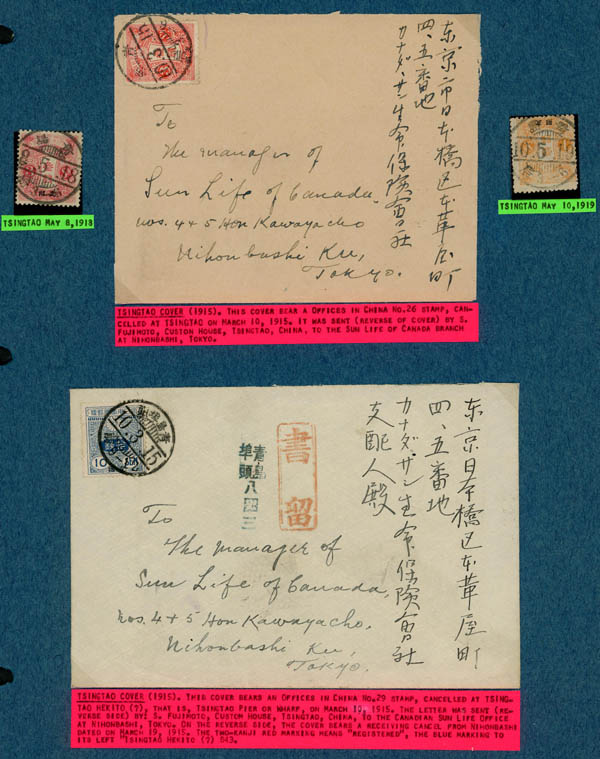 东京市日本橋区本革屋町
四、五番地
カナダ、サン生命保険会社
To
The manager of
Sun Life of Canada,
nos. 4 & 5 Hon Kawayacho
Nihonbashi Ku,
Tokyo.
TSINGTAO MAY 8,1918
TSINGTAO MAY 10,1919
TSINGTAO COVER (1915). THIS COVER BEAR A OFFICES IN CHINA NO.26 STAMP, CAN-
CELLED AT TSINGTAO ON MARCH 10, 1915. IT WAS SENT (REVERSE OF COVER) BY S.
FUJIMOTO, CUSTON HOUSE, TSINGTAO, CHINA, TO THE SUN LIFE OF CANADA BRANCH
AT NIHONBASHI, TOKYO.
10
10.3.15
書留
青島
埠頭八四三
东京日本橋区本革屋町
四、五番地
カナダ、サン生命保険会社
支配人殿
To
The manager of
Sun Life of Canada,
nos. 4 & 5 Hon Kawayacho.
Nihonbashi Ku,
Tokyo.
TSINGTAO COVER (1915). THIS COVER BEARS AN OFFICES IN CHINA NO.29 STAMP, CANCELLED AT TSING-
TAO HEKITO (?), THAT IS, TSINGTAO PIER OR WHARF, ON MARCH 10, 1915. THE LETTER WAS SENT (RE-
VERSE SIDE) BY: S. FUJIMOTO, CUSTOM HOUSE, TSINGTAO, CHINA, TO THE CANADIAN SUN LIFE OFFICE
AT NIHONBASHI, TOKYO. ON THE REVERSE SIDE, THE COVER BEARS A RECEIVING CANCEL FROM NIHONBASHI
DATED ON MARCH 19, 1915. THE TWO-KANJI RED MARKING MEANS "REGISTERED", THE BLUE MARKING TO
ITS LEFT "TSINGTAO HEKITO (?) 843.